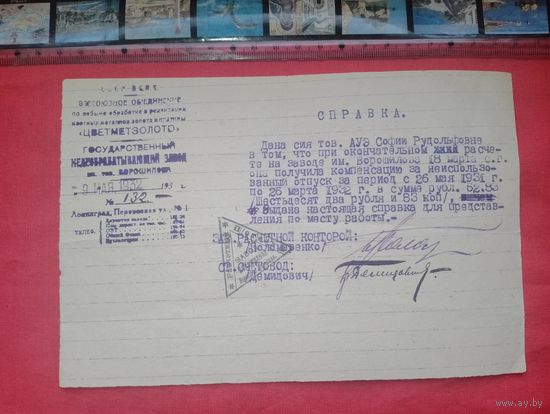 ВСЕСОЮЗНОЕ ОБЪЕДИНЕНИЕ
по добыче обработке и реализации
цветных металлов золота и платины
«ЦВЕТМЕТЗОЛОТО»
ГОСУДАРСТВЕННЫЙ
МЕДЕОБРАБАТЫВАЮЩИЙ ЗАВОД
им. тов. ВОРОШИЛОВА
9 МАЯ 1932 193 г.
№ 132
Ленинград, № 1
ТЕЛЕФ.
СПРАВКА.
Дана сия тов. АУЭ Софии Рудольфовне
в том, что при окончательном расче-
те на заводе им. Ворошилова 18 марта с.г.
она получила компенсацию за неиспользо-
ванный отпуск за период с 26 мая 1931 г
по 26 марта 1932 г в сумма рубл. 62.83
/Шестьдесят два рубля и 83 коп/,
Выдана настоящая справка для представ-
ления по месту работы.-
ЗАВ РАСЧЕТНОЙ КОНТОРОЙ:
СЧЕТОВОД:
/Демидович/
www.ay.by